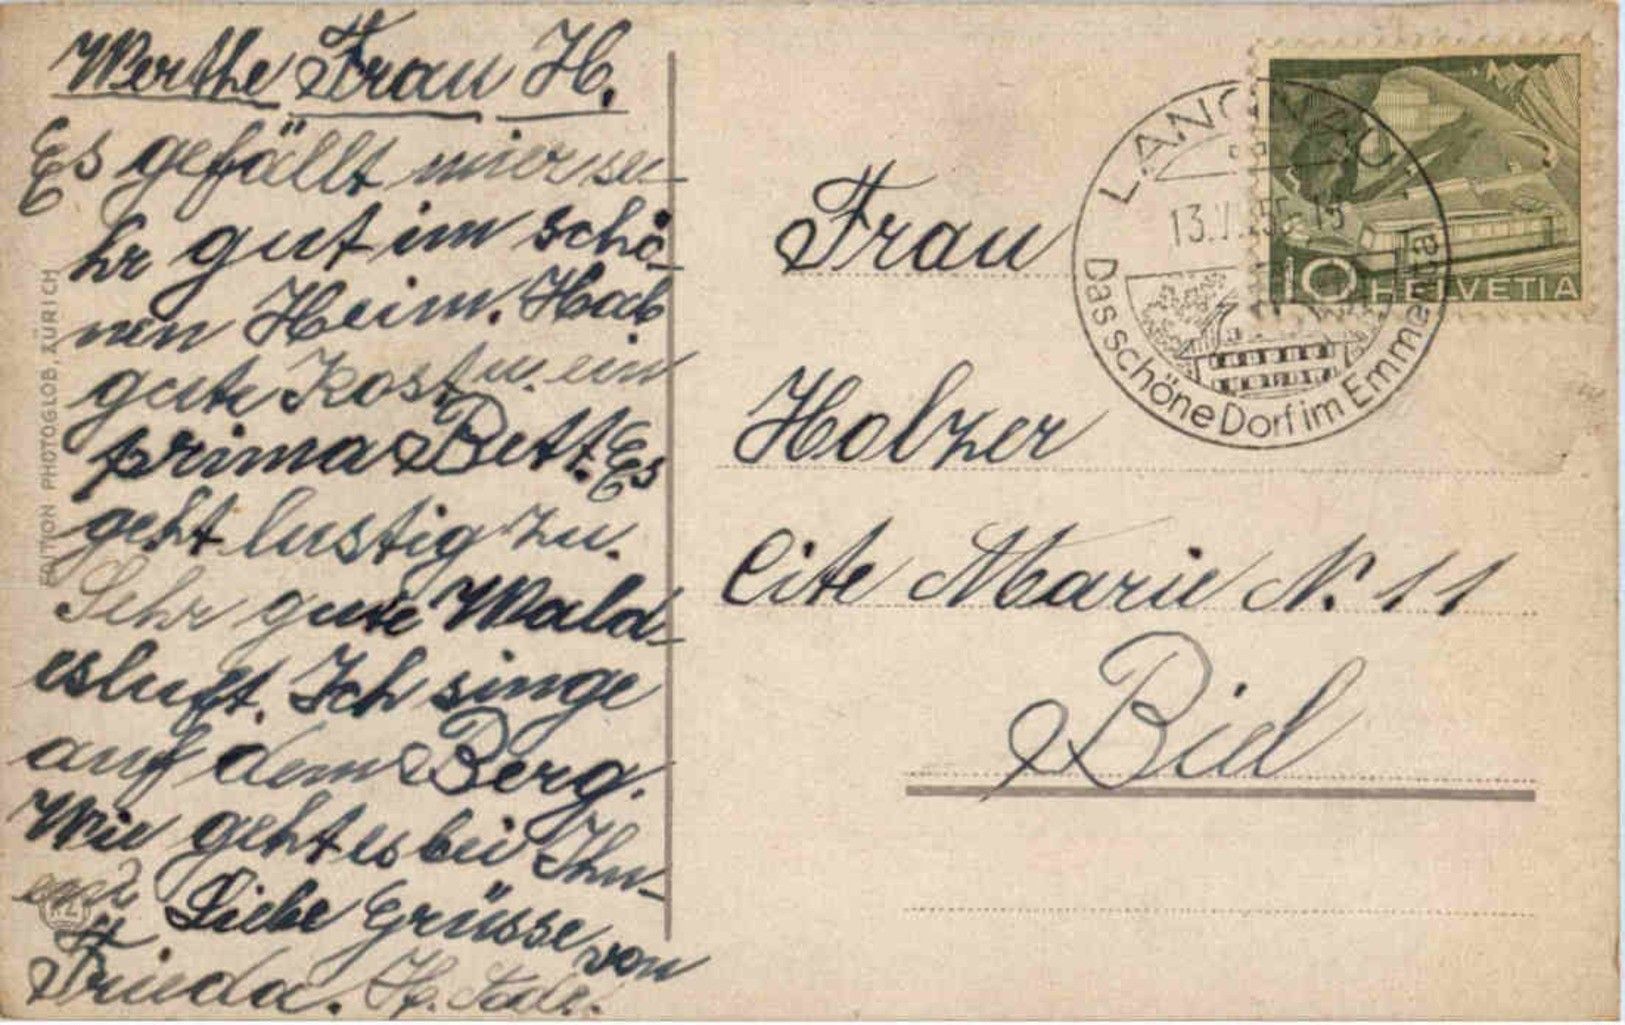 Werthe Frau H.
Es gefällt mier se-
hr gut im schö-
nen Heim. Hab
gute Kost u. ein
prima Bett. Es
geht lustig zu.
Sehr gute Wald-
esluft. Ich singe
auf dem Berg.
Wie geht es bei Ihn-
en?
Liebe Grüsse von
Frieda. H.
EDITION PHOTOGLOB, ZÜRICH
LANGNAU
13.V
Das schöne Dorf im Emmental
10 HELVETIA
Frau
Holzer
Cite Marie N. 11
Biel